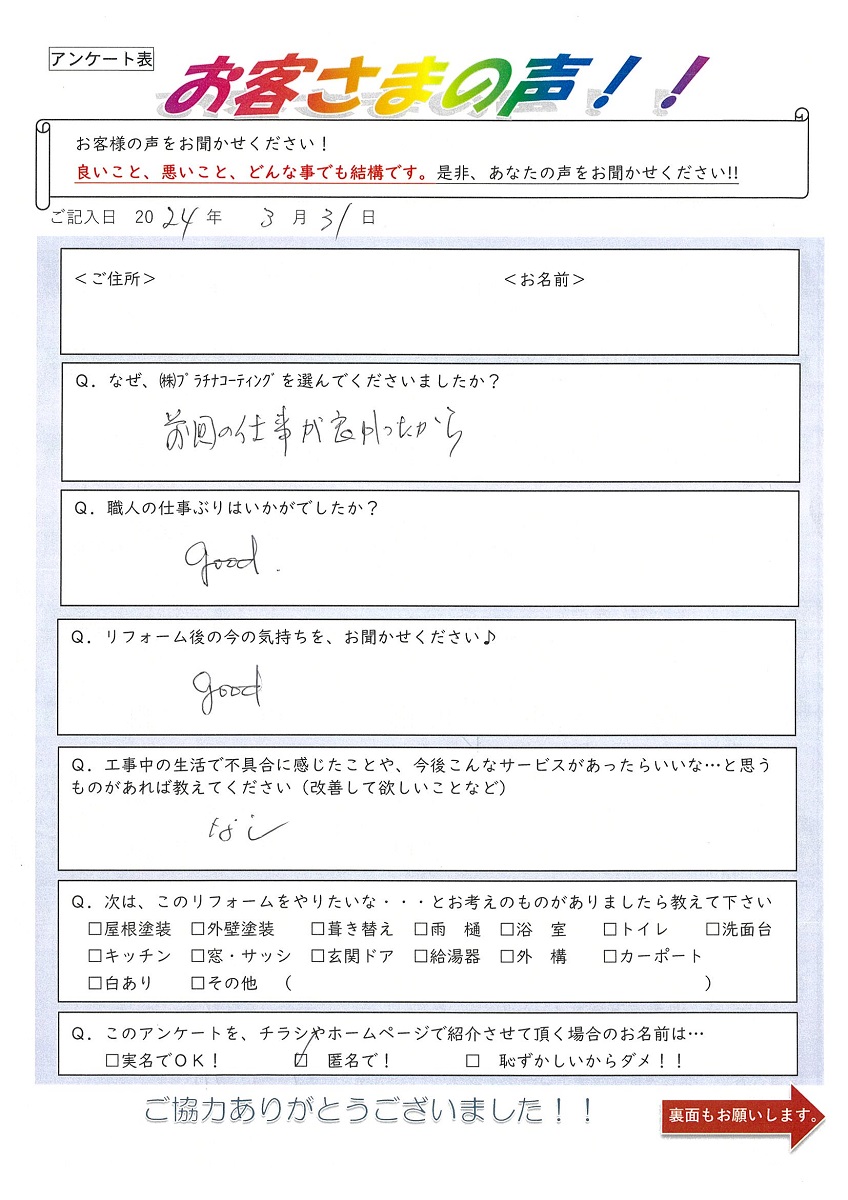 アンケート表
お客さまの声！！
お客様の声をお聞かせください！
良いこと、悪いこと、どんな事でも結構です。是非、あなたの声をお聞かせください!!
ご記入日 2024年 3月31日
＜ご住所＞ ＜お名前＞
Q．なぜ、㈱ﾌﾟﾗﾁﾅｺｰﾃｨﾝｸﾞを選んでくださいましたか？
前回の仕事が良かったから
Q．職人の仕事ぶりはいかがでしたか？
good.
Q．リフォーム後の今の気持ちを、お聞かせください♪
good
Q．工事中の生活で不具合に感じたことや、今後こんなサービスがあったらいいな…と思う
ものがあれば教えてください（改善して欲しいことなど）
なし
Q．次は、このリフォームをやりたいな・・・とお考えのものがありましたら教えて下さい
□屋根塗装 □外壁塗装 □葺き替え □雨 樋 □浴 室 □トイレ □洗面台
□キッチン □窓・サッシ □玄関ドア □給湯器 □外 構 □カーポート
□白あり □その他 （ ）
Q．このアンケートを、チラシやホームページで紹介させて頂く場合のお名前は…
□実名でＯＫ！ ☑ 匿名で！ □ 恥ずかしいからダメ！！
ご協力ありがとうございました！！
裏面もお願いします。